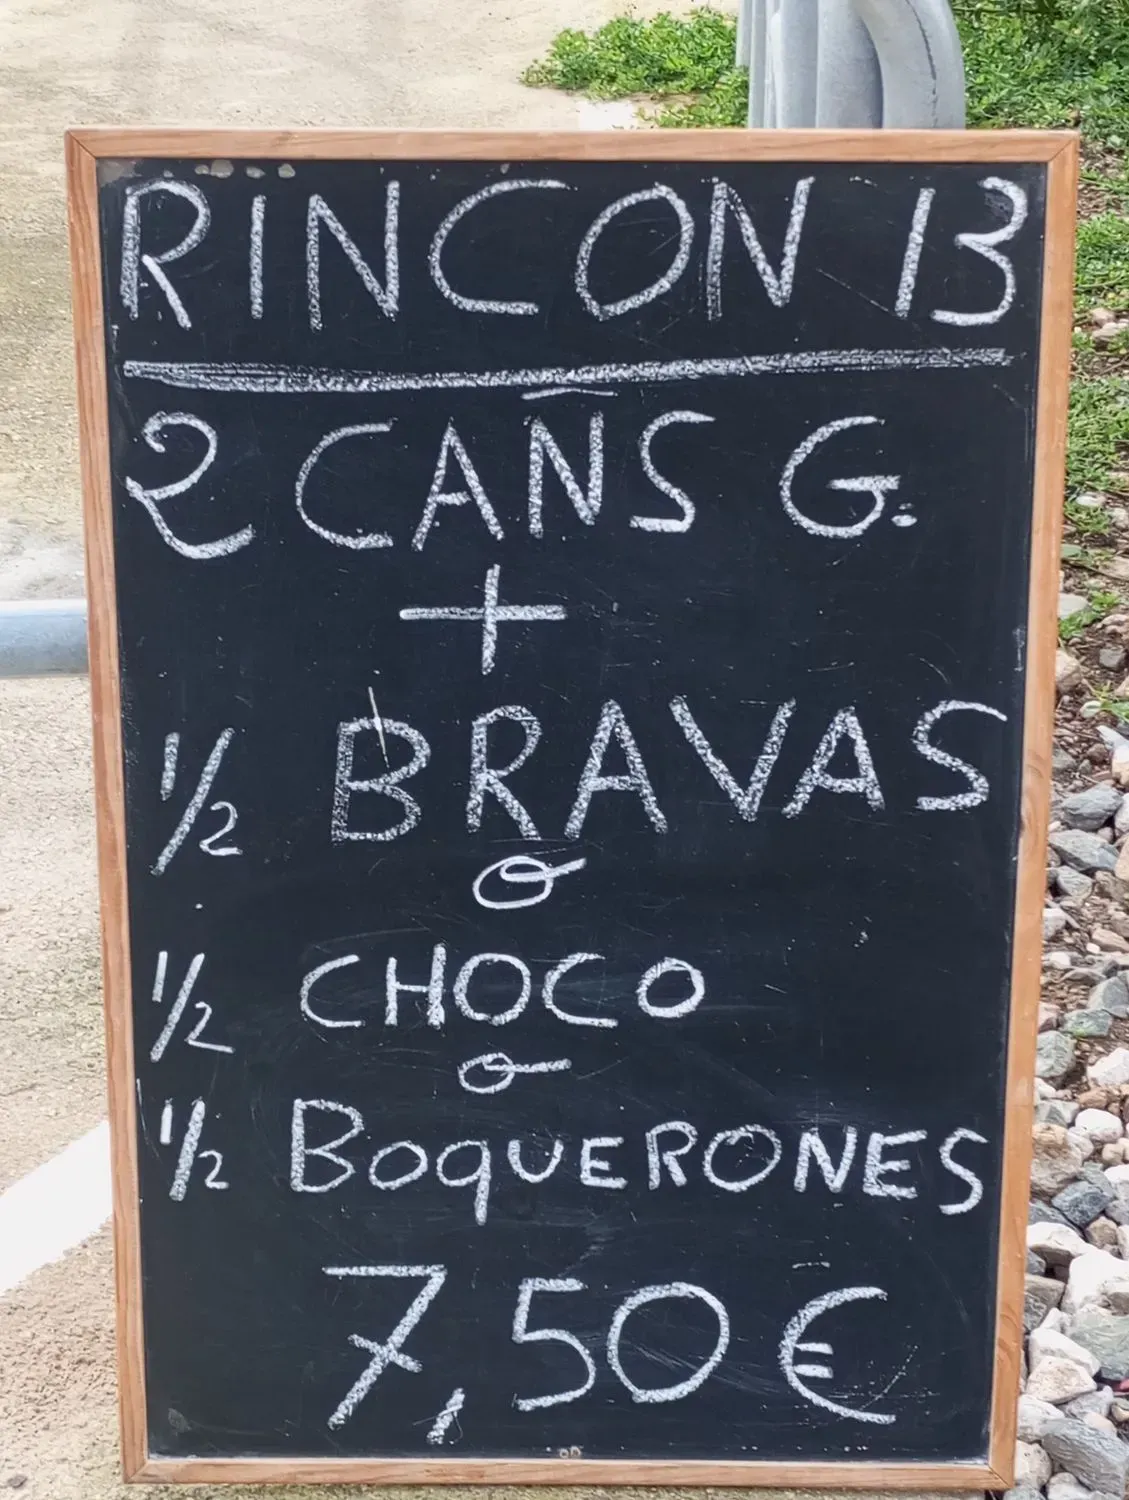 RINCON 13
2 CAÑS G.
+
1/2 BRAVAS
o
1/2 CHOCO
o
1/2 BOQUERONES
7,50 €